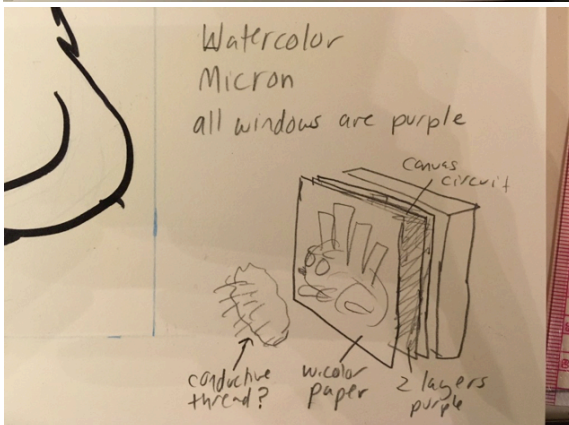 Watercolor
Micron
all windows are purple
canvas
circuit
conductive
thread?
w.color
paper
2 layers
purple